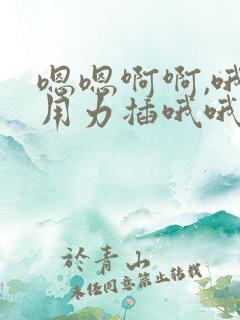 嗯嗯啊啊,哦
用力插哦哦
於青山
未经同意禁止转载